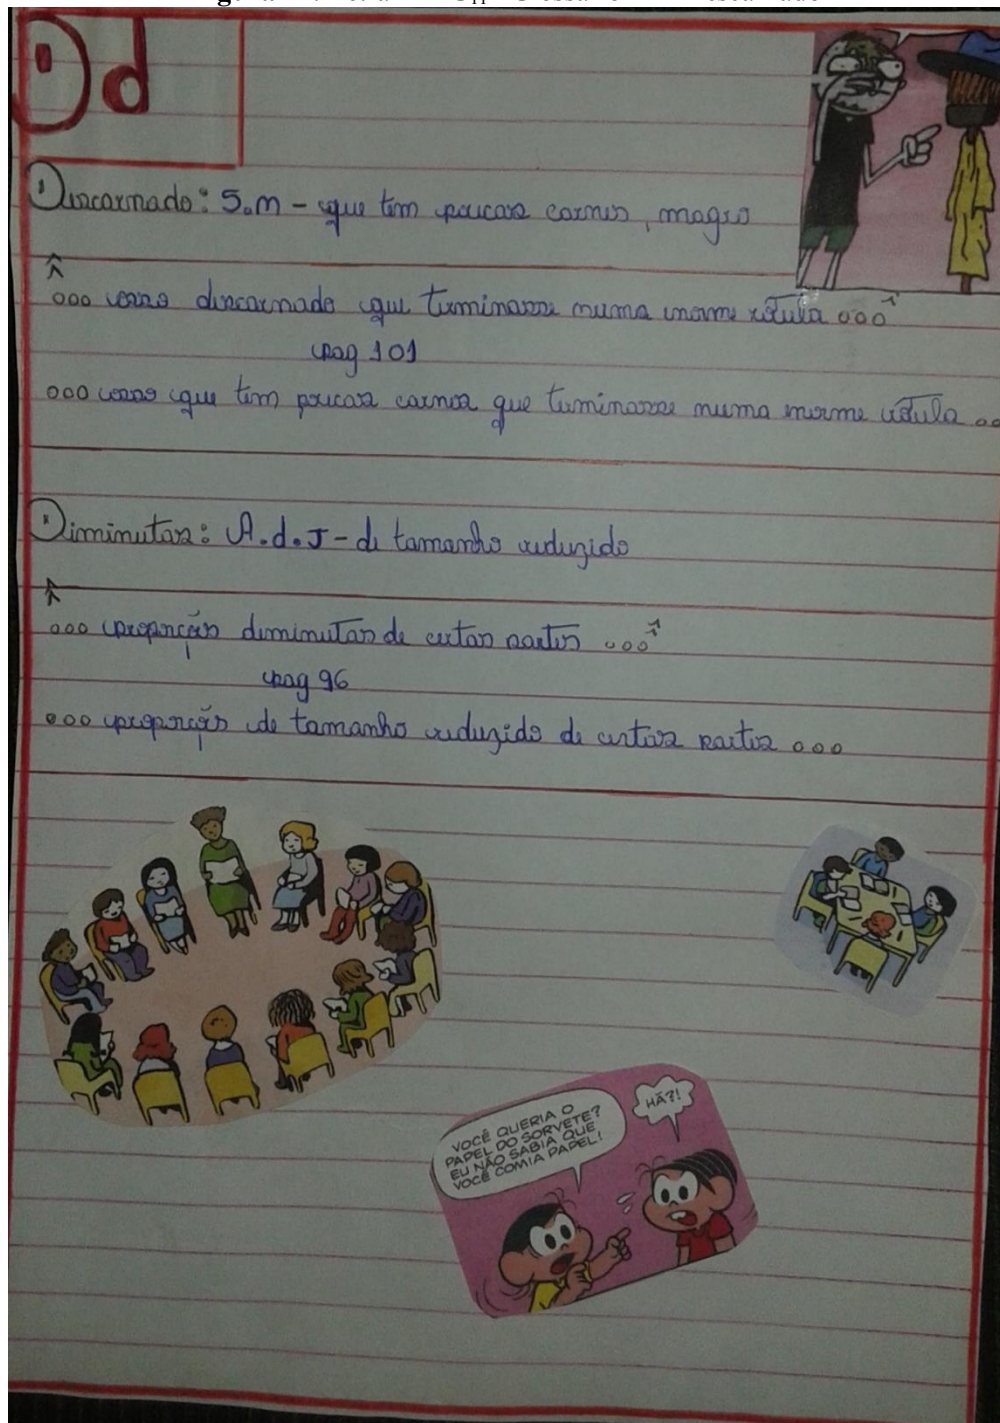 D d
Descarnado: S.m - que tem poucas carnes, magro
"ooo osso descarnado que terminasse numa enorme rótula ooo"
pag 101
ooo osso que tem poucas carnes que terminasse numa enorme rótula oo
Diminutas: A.d.J - de tamanho reduzido
"ooo proporção diminutas de certas partes ooo"
pag 96
ooo proporção de tamanho reduzido de certas partes ooo
VOCÊ QUERIA O
PAPEL DO SORVETE?
EU NÃO SABIA QUE
VOCÊ COMIA PAPEL!
HÃ?!